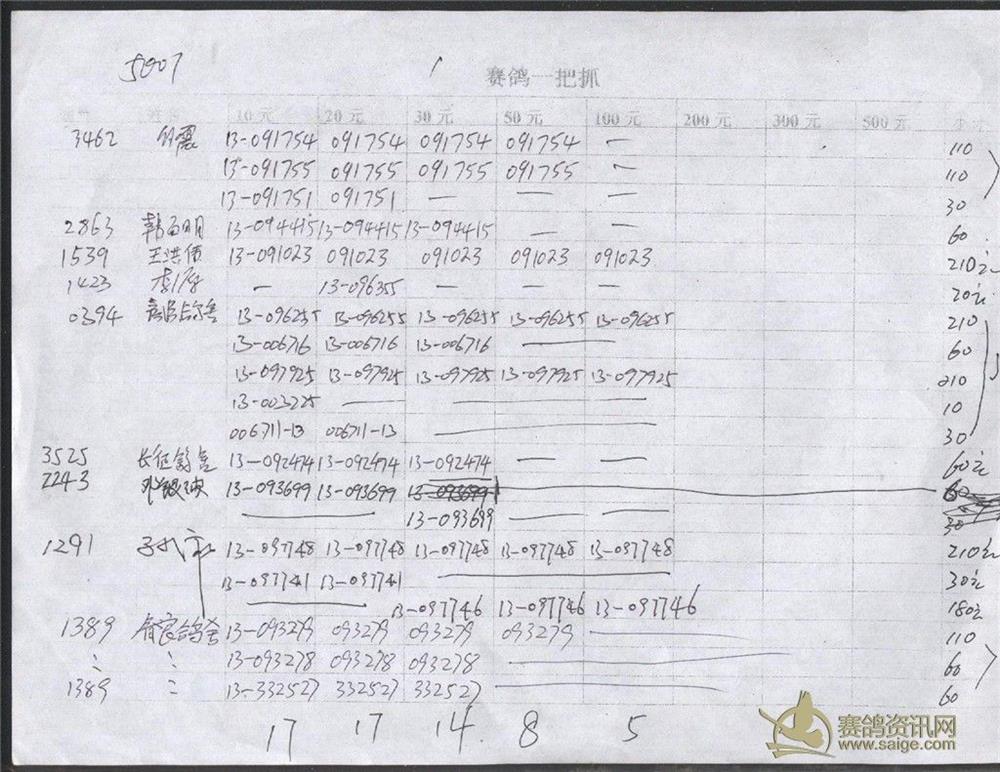 5007 1 赛鸽一把抓
10元 20元 30元 50元 100元 200元 300元 500元
3462 13-091754 091754 091754 091754 — 110
13-091755 091755 091755 091755 — 110
13-091751 091751 — — — 30
2863 13-094415 13-094415 13-094415 — — 60
1539 王洪伟 13-091023 091023 091023 091023 091023 210元
1423 — 13-096355 — — — 20元
0394 13-096255 13-096255 13-096255 13-096255 13-096255 210
13-006716 13-006716 13-006716 — 60
13-097925 13-097925 13-097925 13-097925 13-097925 210
13-003225 — — 10
006711-13 006711-13 — 30
3525 13-092474 13-092474 13-092474 — — 60元
2243 13-093699 13-093699 13-093699 60
— 13-093699 — — 30
1291 13-097748 13-097748 13-097748 13-097748 13-097748 210元
13-097741 13-097741 — 30元
— 13-097746 13-097746 13-097746 180元
1389 13-093279 093279 093279 093279 — 110
13-093278 093278 093278 — 60
1389 13-332527 332527 332527 — 60
17 17 14. 8 5
赛鸽资讯网
www.saige.com